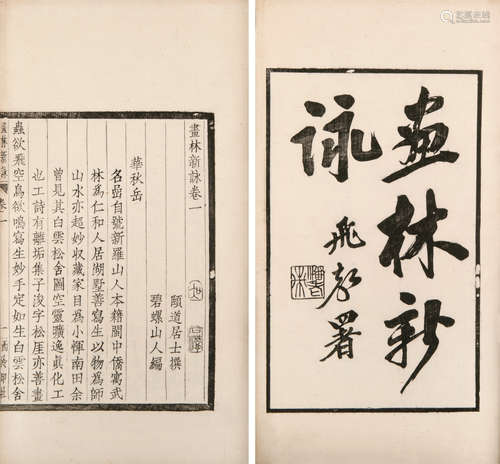 畫林新
詠
飛聲署
畫林新詠卷一
頤道居士撰
碧螺山人編
華秋岳
名嵒自號新羅山人本籍閩中僑寓武
林為仁和人居湖墅善寫生以物為師
山水亦超妙收藏家目為小惲南田余
曾見其白雲松舍圖空靈曠逸眞化工
也工詩有離垢集子浚字松厓亦善畫
蟲欲飛空鳥欲鳴寫生妙手定如生白雲松舍
畫林新詠 卷一 一